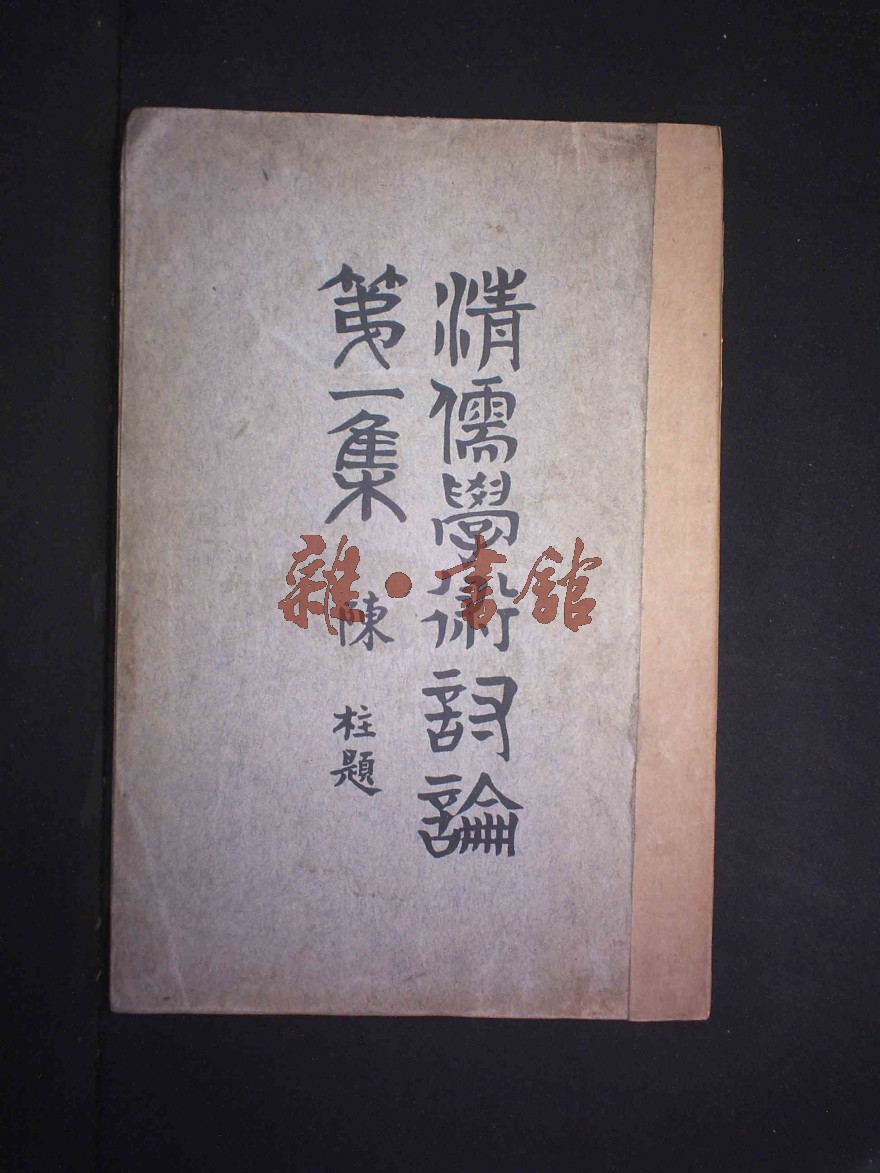 清儒學術討論
第一集 陳柱題
雜·書館